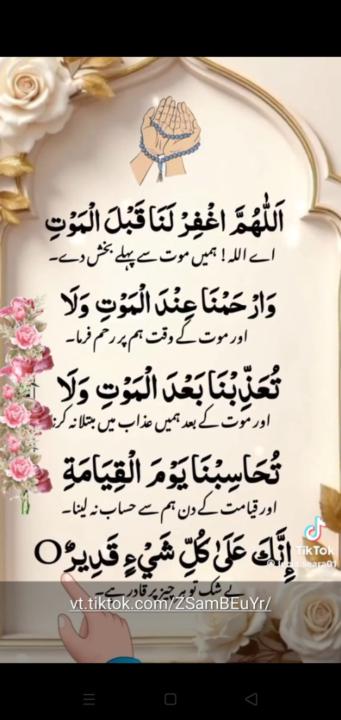 اَللّٰهُمَّ اغْفِرْ لَنَا قَبْلَ الْمَوْتِ
اے اللہ! ہمیں موت سے پہلے بخش دے۔
وَارْحَمْنَا عِنْدَ الْمَوْتِ وَلَا
اور موت کے وقت ہم پر رحم فرما۔
تُعَذِّبْنَا بَعْدَ الْمَوْتِ وَلَا
اور موت کے بعد ہمیں عذاب میں مبتلا نہ کرنا
تُحَاسِبْنَا يَوْمَ الْقِيَامَةِ
اور قیامت کے دن ہم سے حساب نہ لینا۔
إِنَّكَ عَلَىٰ كُلِّ شَيْءٍ قَدِيرٌ
TikTok
بے شک تو ہر چیز پر قادر ہے۔
vt.tiktok.com/ZSamBEuYr/